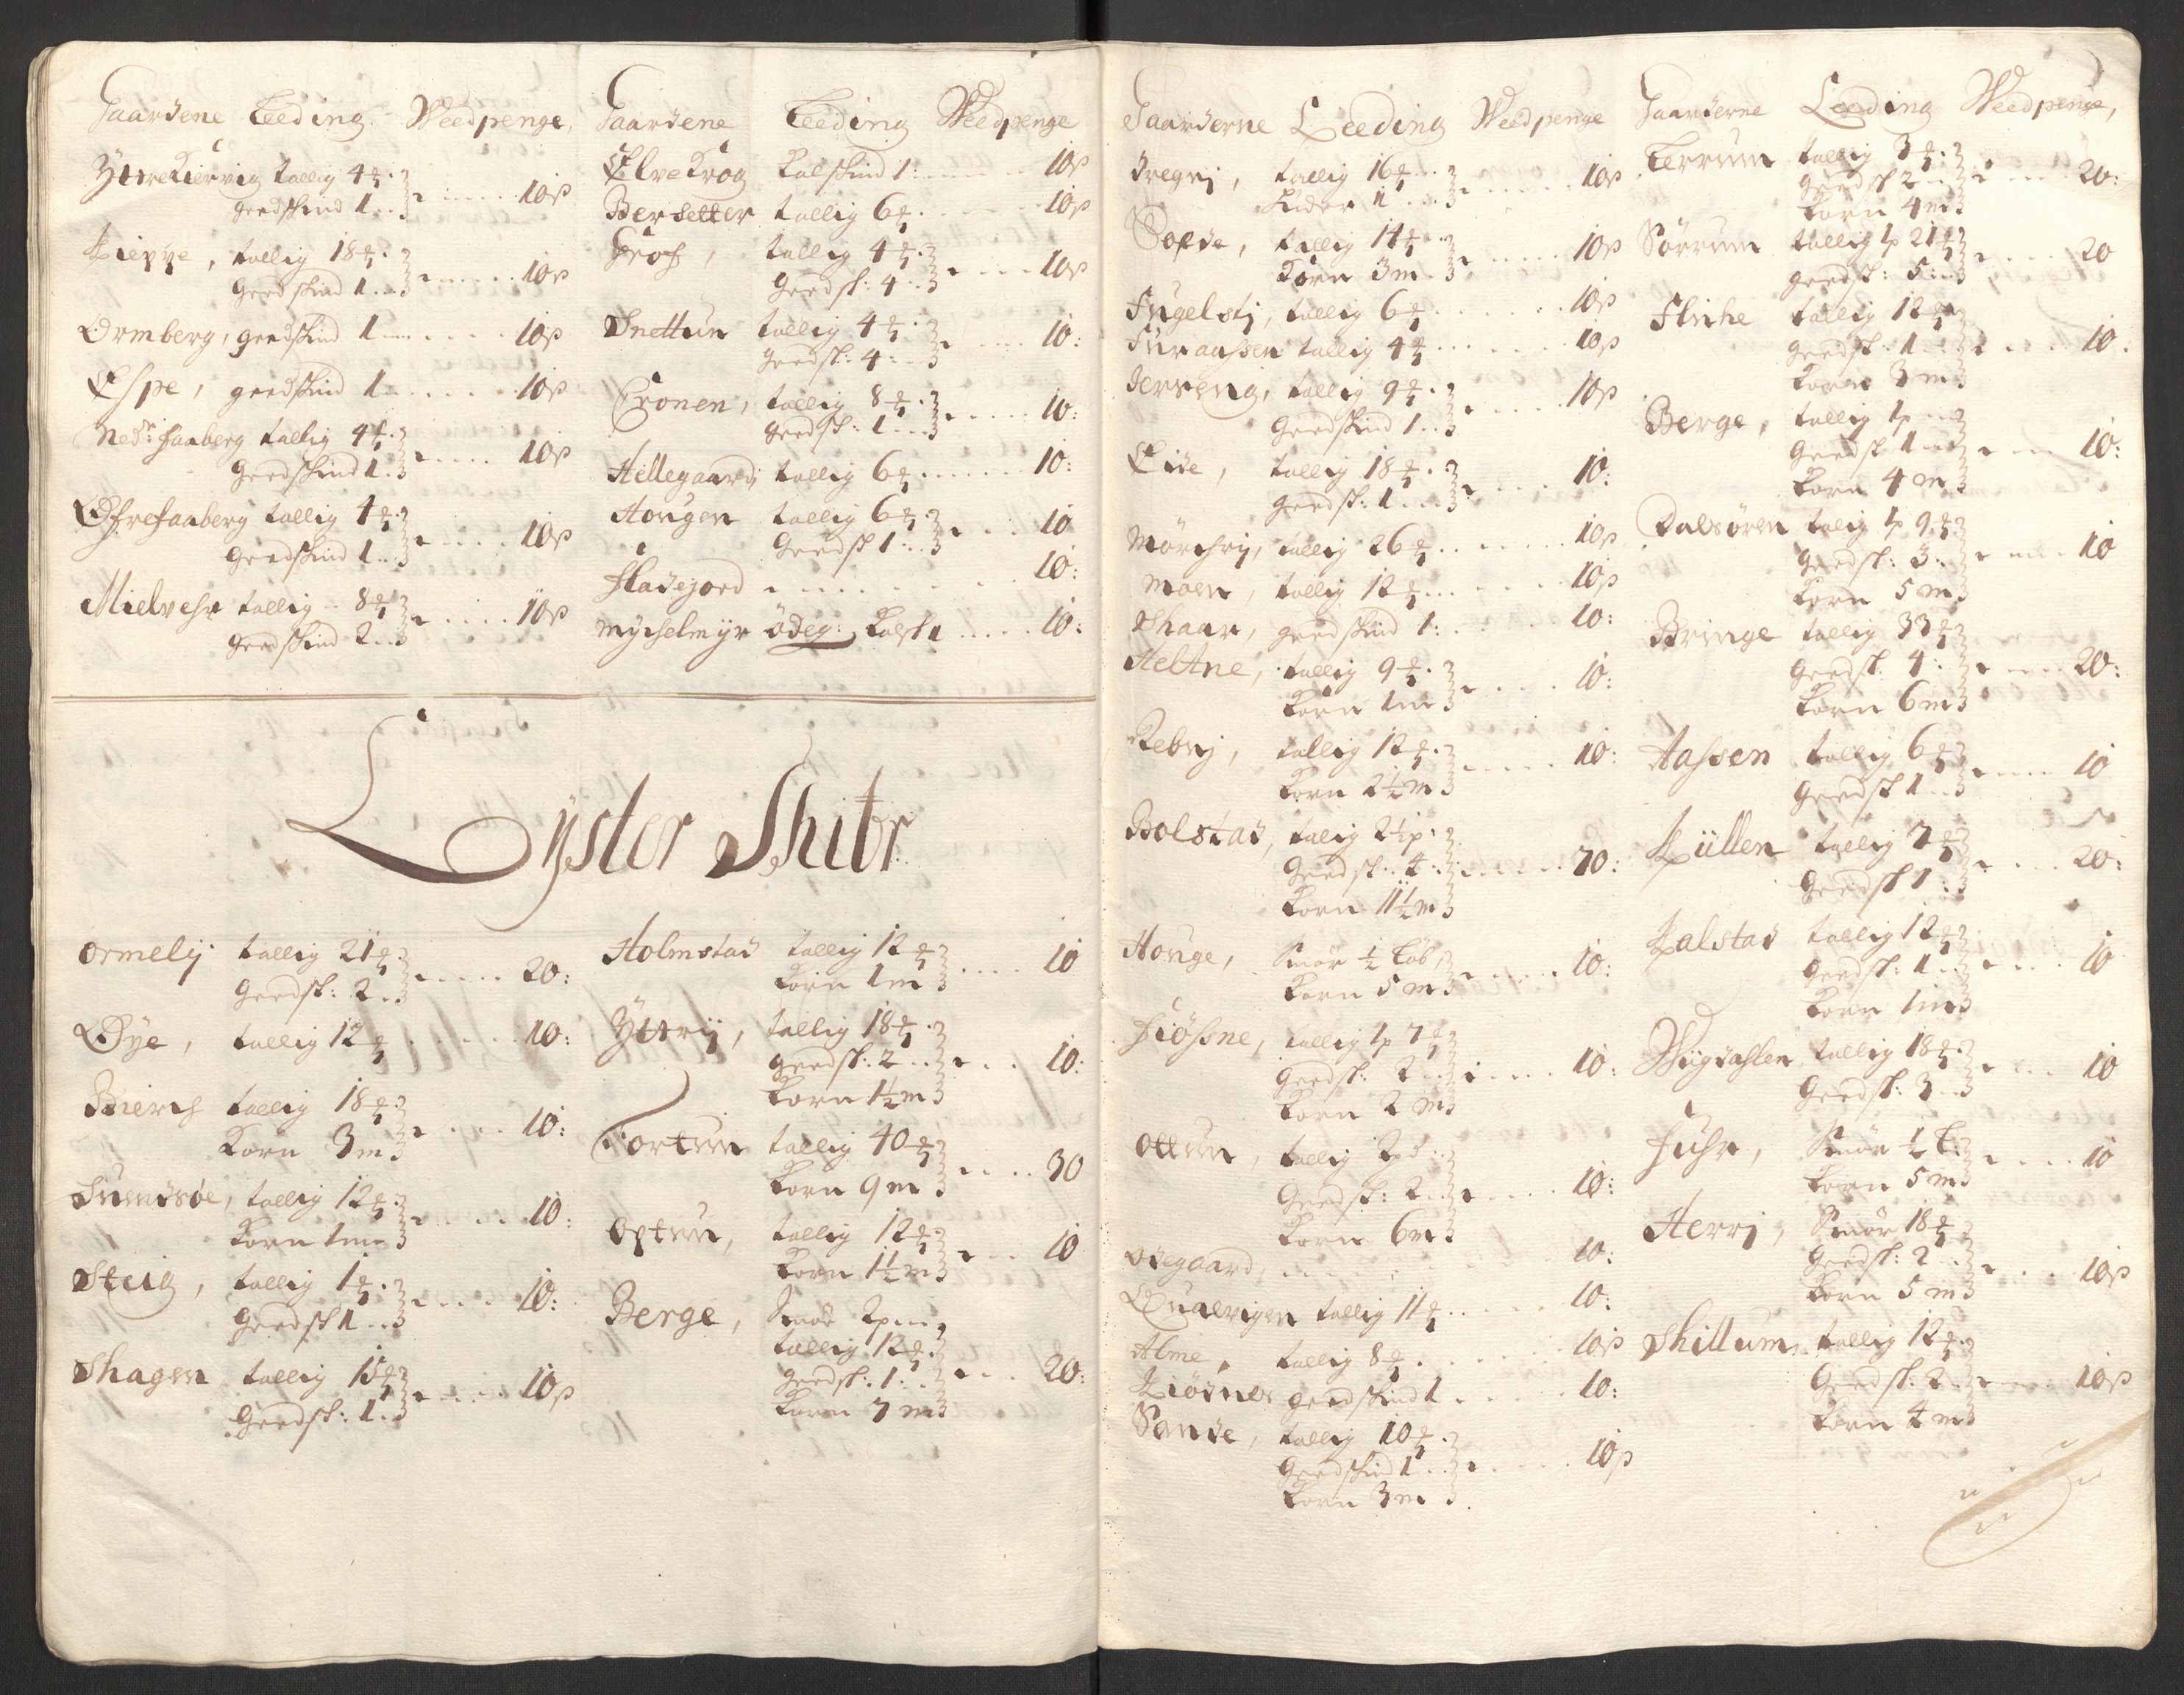 Gaardene Leeding Weedpenge,
Yttre Kiervig tallig 4 ℔
geedskind 1 10 ß
Kieppe, tallig 18 ℔
Geedskind 1 10 ß
Ormberg, geedskind 1 10 ß
Espe, geedskind 1 10 ß
Nedr: faaberg tallig 4 ℔
Geedskind 1 10 ß
Øfrefaaberg tallig 4 ℔
Geedskind 1 10 ß
Mielvehr tallig 8 ℔
Geedskind 2 10 ß
Gaardene Leeding Weedpenge
Elvekrog kalskind 1 10 ß
Bersetter tallig 6 ℔ 10 ß
tallig 4 ℔
Geedsk: 4 10 ß
Snettun tallig 4 ℔
Geedsk: 4 10:
Cronen, tallig 8 ℔
Geedsk: 1 10:
Hellegaard tallig 6 ℔ 10:
Hougen tallig 6 ℔
Geedsk 1 10
Fladejord 10:
Myhelmyr ødeg: kalsk 1 10:
Lyster Skibr
Ormely tallig 21 ℔
Geedsk: 2 20:
Øye, tallig 12 ℔ 10:
Bierch tallig 18 ℔
Korn 3 m 10:
Sundsøe, tallig 12 ℔
Korn 1 m 10:
Steig, tallig 1 ℔
Geedsk 1 10:
Skagen tallig 15 ℔
Geedsk: 1 10 ß
Holmstad tallig 12 ℔
Korn 1 m 10
Yttrij, tallig 18 ℔
geedsk: 2 10:
Korn 1½ m
Fortun tallig 40 ℔
Korn 9 m 30
Optun, tallig 12 ℔
Korn 1½ m 10
Berge, Smør 2 p
tallig 12 ℔
geedsk: 1 20:
Korn 7 m
Gaarderne Leeding Weedpenge
Dregnj, tallig 16 ℔
Huder 1 10 ß
Bolde, tallig 14 ℔
Korn 3 m 10 ß
Fugelstj, tallig 6 ℔ 10 ß
Furaassen tallig 4 ℔ 10 ß
Jerseng, tallig 9 ℔
Geedskind 1 10 ß
Eide, tallig 18 ℔
geedsk: 1 10:
Mørchrij, tallig 26 ℔ 10 ß
Moen, tallig 12 ℔ 10 ß
Skaar, geedskind 1 10:
Heltne, tallig 9 ℔
Korn 1 m 10:
Rebnj, tallig 12 ℔
Korn 2½ m 10:
Bolstad, tallig 2½ p
Geedsk: 4 70:
Korn 11½ m
Houge, Smør ½ Løb,
Korn 5 m 10:
Fiøsne, tallig 1 p 7 ℔
Geedsk: 2 10:
Korn 2 m
Ottun, tallig 2 pd
Geedsk: 2 10:
Korn 6 m
Ødegaard, 10:
Qualvigen tallig 11 ℔ 10:
Alme, tallig 8 ℔ 10 ß
Kiøsnes geedskind 1 10:
Sande, tallig 10 ℔
Geedskind 1 10 ß
Korn 3 m
Gaarderne Leeding Weedpenge,
Lerrum tallig 3 ℔
Geedsk 2 20:
Korn 4 m
Sørrum tallig 1 p 21 ℔
geedsk: 5 20
Fliche tallig 12 ℔
geedsk: 1 10:
Korn 3 m
Berge, tallig 1 p
Geedsk 1 10:
Korn 4 m
Dalsøren talig 1 p 9 ℔
Geedsk: 3 10
Korn 5 m
Bringe tallig 33 ℔
Geedsk: 4 20:
Korn 6 m
Aassen tallig 6 ℔
Geedsk 1 10
Küllen tallig 7 ℔
Geedsk 1 20:
Kalstad tallig 12 ℔
geedsk: 1 10
Korn 1 m
Wigdahlen tallig 18 ℔
Geedsk: 3 10
Fuhr, Smør ½ L:
Korn 5 m 10
Herrj, Smør 18 ℔
Geedsk: 2 10 ß
Korn 5 m
Skillum, tallig 12 ℔
Geedsk: 2 10 ß
Korn 4 m